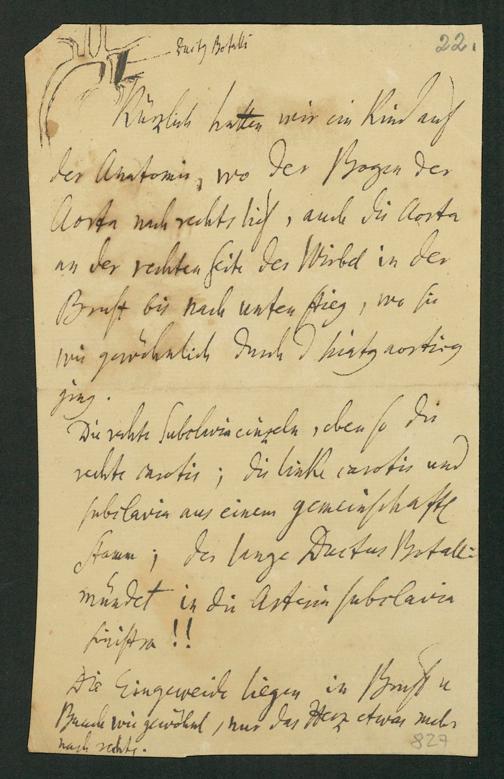 Ductus Botalli
22.
Kürzlich hatten wir ein Kind auf
der Anatomie, wo der Bogen der
Aorta nach rechts lief, auch die Aorta
an der rechten Seite der Wirbel in der
Brust bis nach unten stieg, wo sie
wie gewöhnlich durch d hiatus aorticus
ging.
Die rechte Subclavia einzeln, ebenso die
rechte carotis; die linke carotis und
subclavia aus einem gemeinschaftl
Stamm; der lange Ductus Botalli
mündet in die Arteria subclavia
sinistra!!
Die Eingeweide liegen in Brust u
Bauch wie gewöhnl, nur das Herz etwas mehr
nach rechts.
827